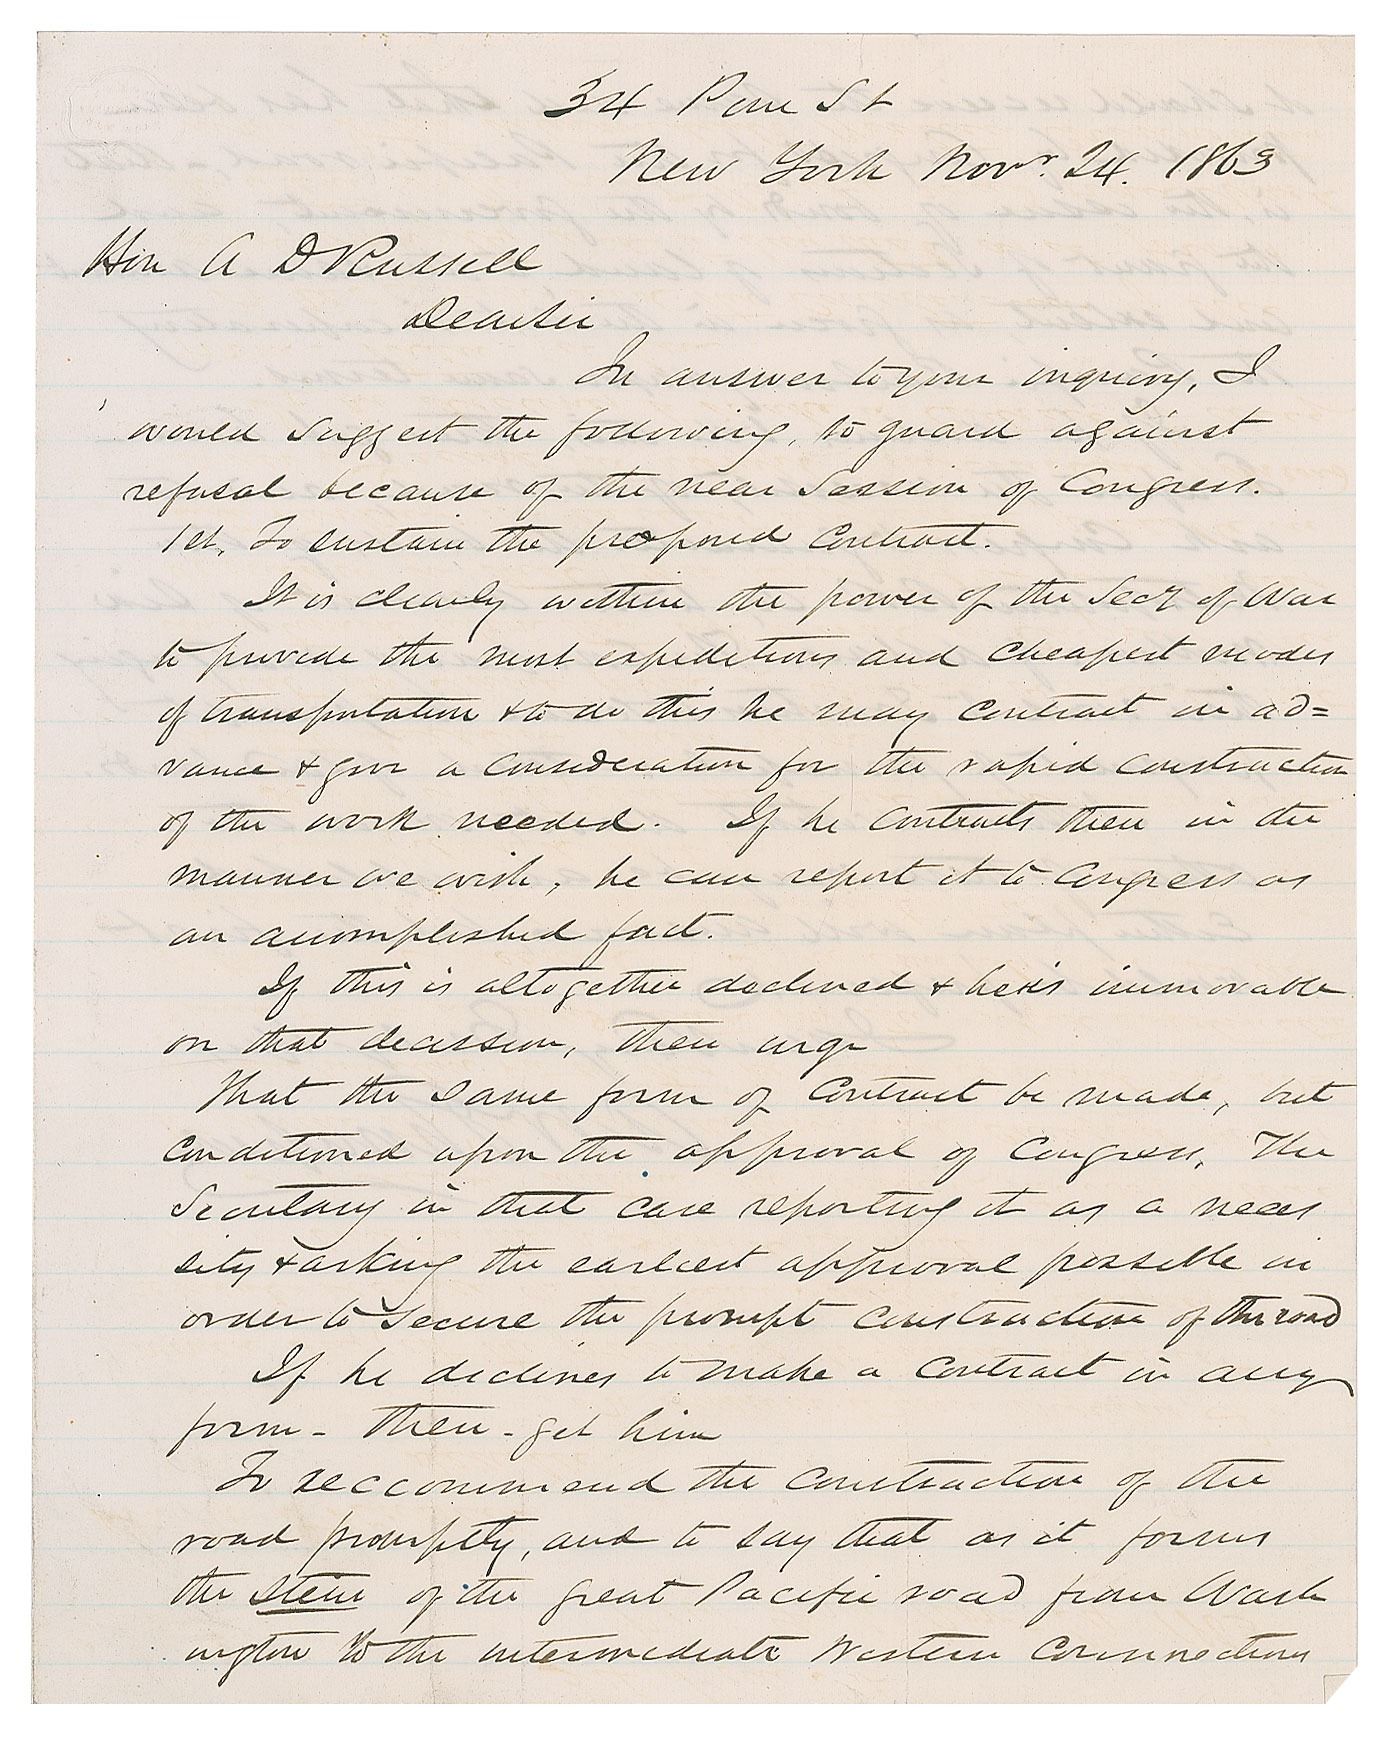 34 Pine St
New York Novr. 24. 1863
Hon A D Russell
Dear Sir
In answer to your inquiry, I
would suggest the following, to guard against
refusal because of the near Session of Congress.
1st, To sustain the proposed Contract.
It is clearly within the power of the Secy of War
to provide the most expeditious and cheapest modes
of transportation & to do this he may contract in ad=
vance & give a consideration for the rapid construction
of the work needed. If he contracts then in the
manner we wish, he can report it to Congress as
an accomplished fact.
If this is altogether declined & he is immovable
on that decission, then urge
That the same form of Contract be made, but
conditioned upon the approval of Congress, The
Secretary in that case reporting it as a neces
sity & asking the earliest approval possible in
order to secure the prompt construction of the road
If he declines to make a contract in any
form - then - get him
To reccommend the construction of the
road promptly, and to say that as it forms
the stem of the great Pacific road from Wash
ington to the intermediate Western Connections